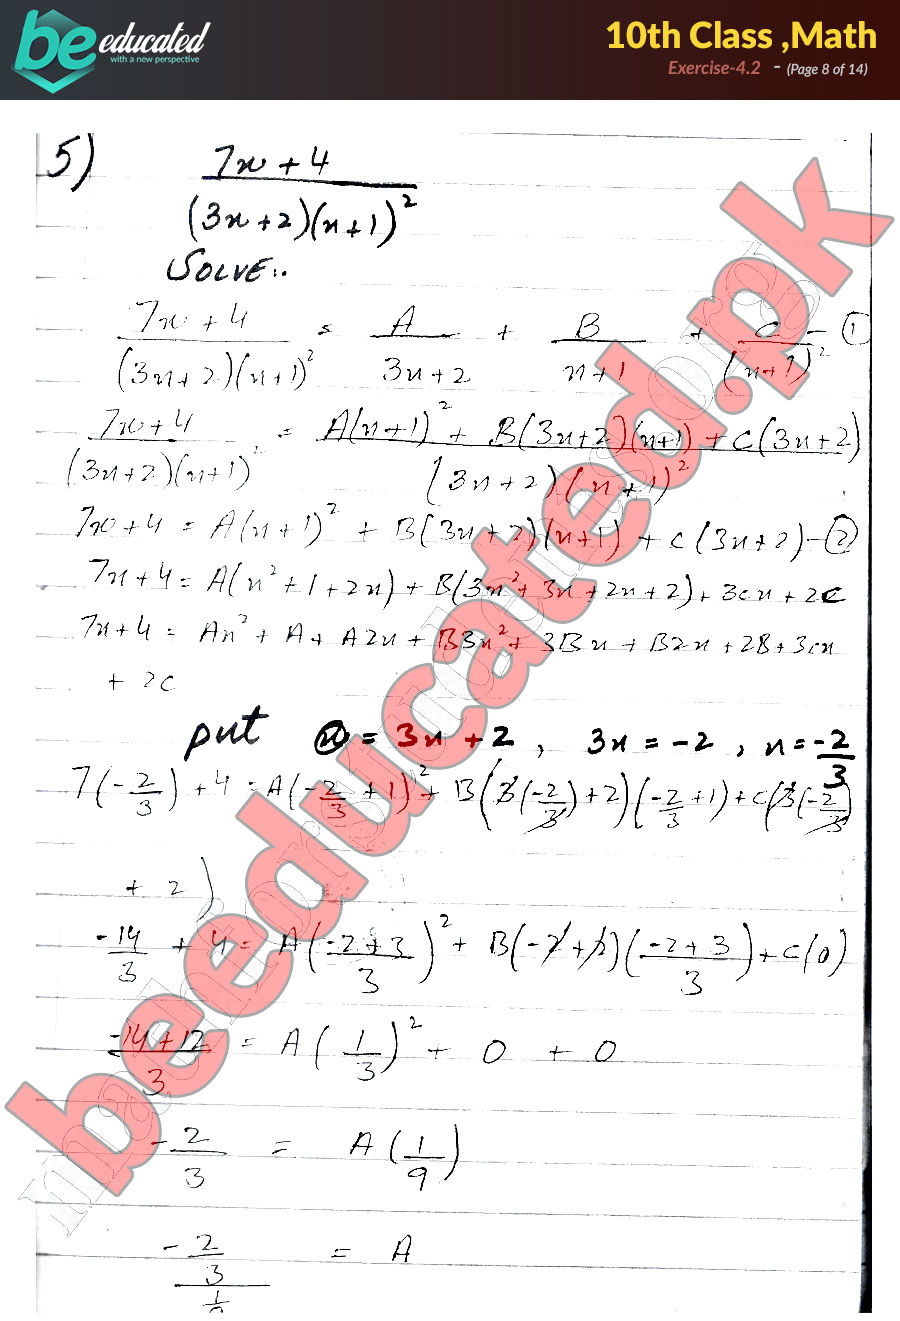 be educated
with a new perspective
10th Class ,Math
Exercise-4.2 - (Page 8 of 14)
5) 7x + 4
(3x+2)(x+1)²
SOLVE:.
7x + 4 / (3x+2)(x+1)² = A / 3x+2 + B / x+1 + C / (x+1)² - ①
7x+4 / (3x+2)(x+1)² = A(x+1)² + B(3x+2)(x+1) + C(3x+2) / (3x+2)(x+1)²
7x+4 = A(x+1)² + B(3x+2)(x+1) + C(3x+2) - ②
7x+4 = A(x²+1+2x) + B(3x²+3x+2x+2) + 3cx + 2c
7x+4 = Ax² + A + A2x + B3x² + 3Bx + B2x + 2B + 3cx
+ 2c
put x = 3x + 2 , 3x = -2 , x = -2/3
7(-2/3) + 4 = A(-2/3 + 1)² + B(3(-2/3)+2)(-2/3+1) + C(3(-2/3)
+ 2)
-14/3 + 4 = A(-2+3/3)² + B(-2+2)(-2+3/3) + C(0)
-14+12/3 = A(1/3)² + 0 + 0
-2/3 = A(1/9)
-2/3 = A
beeducated.pk